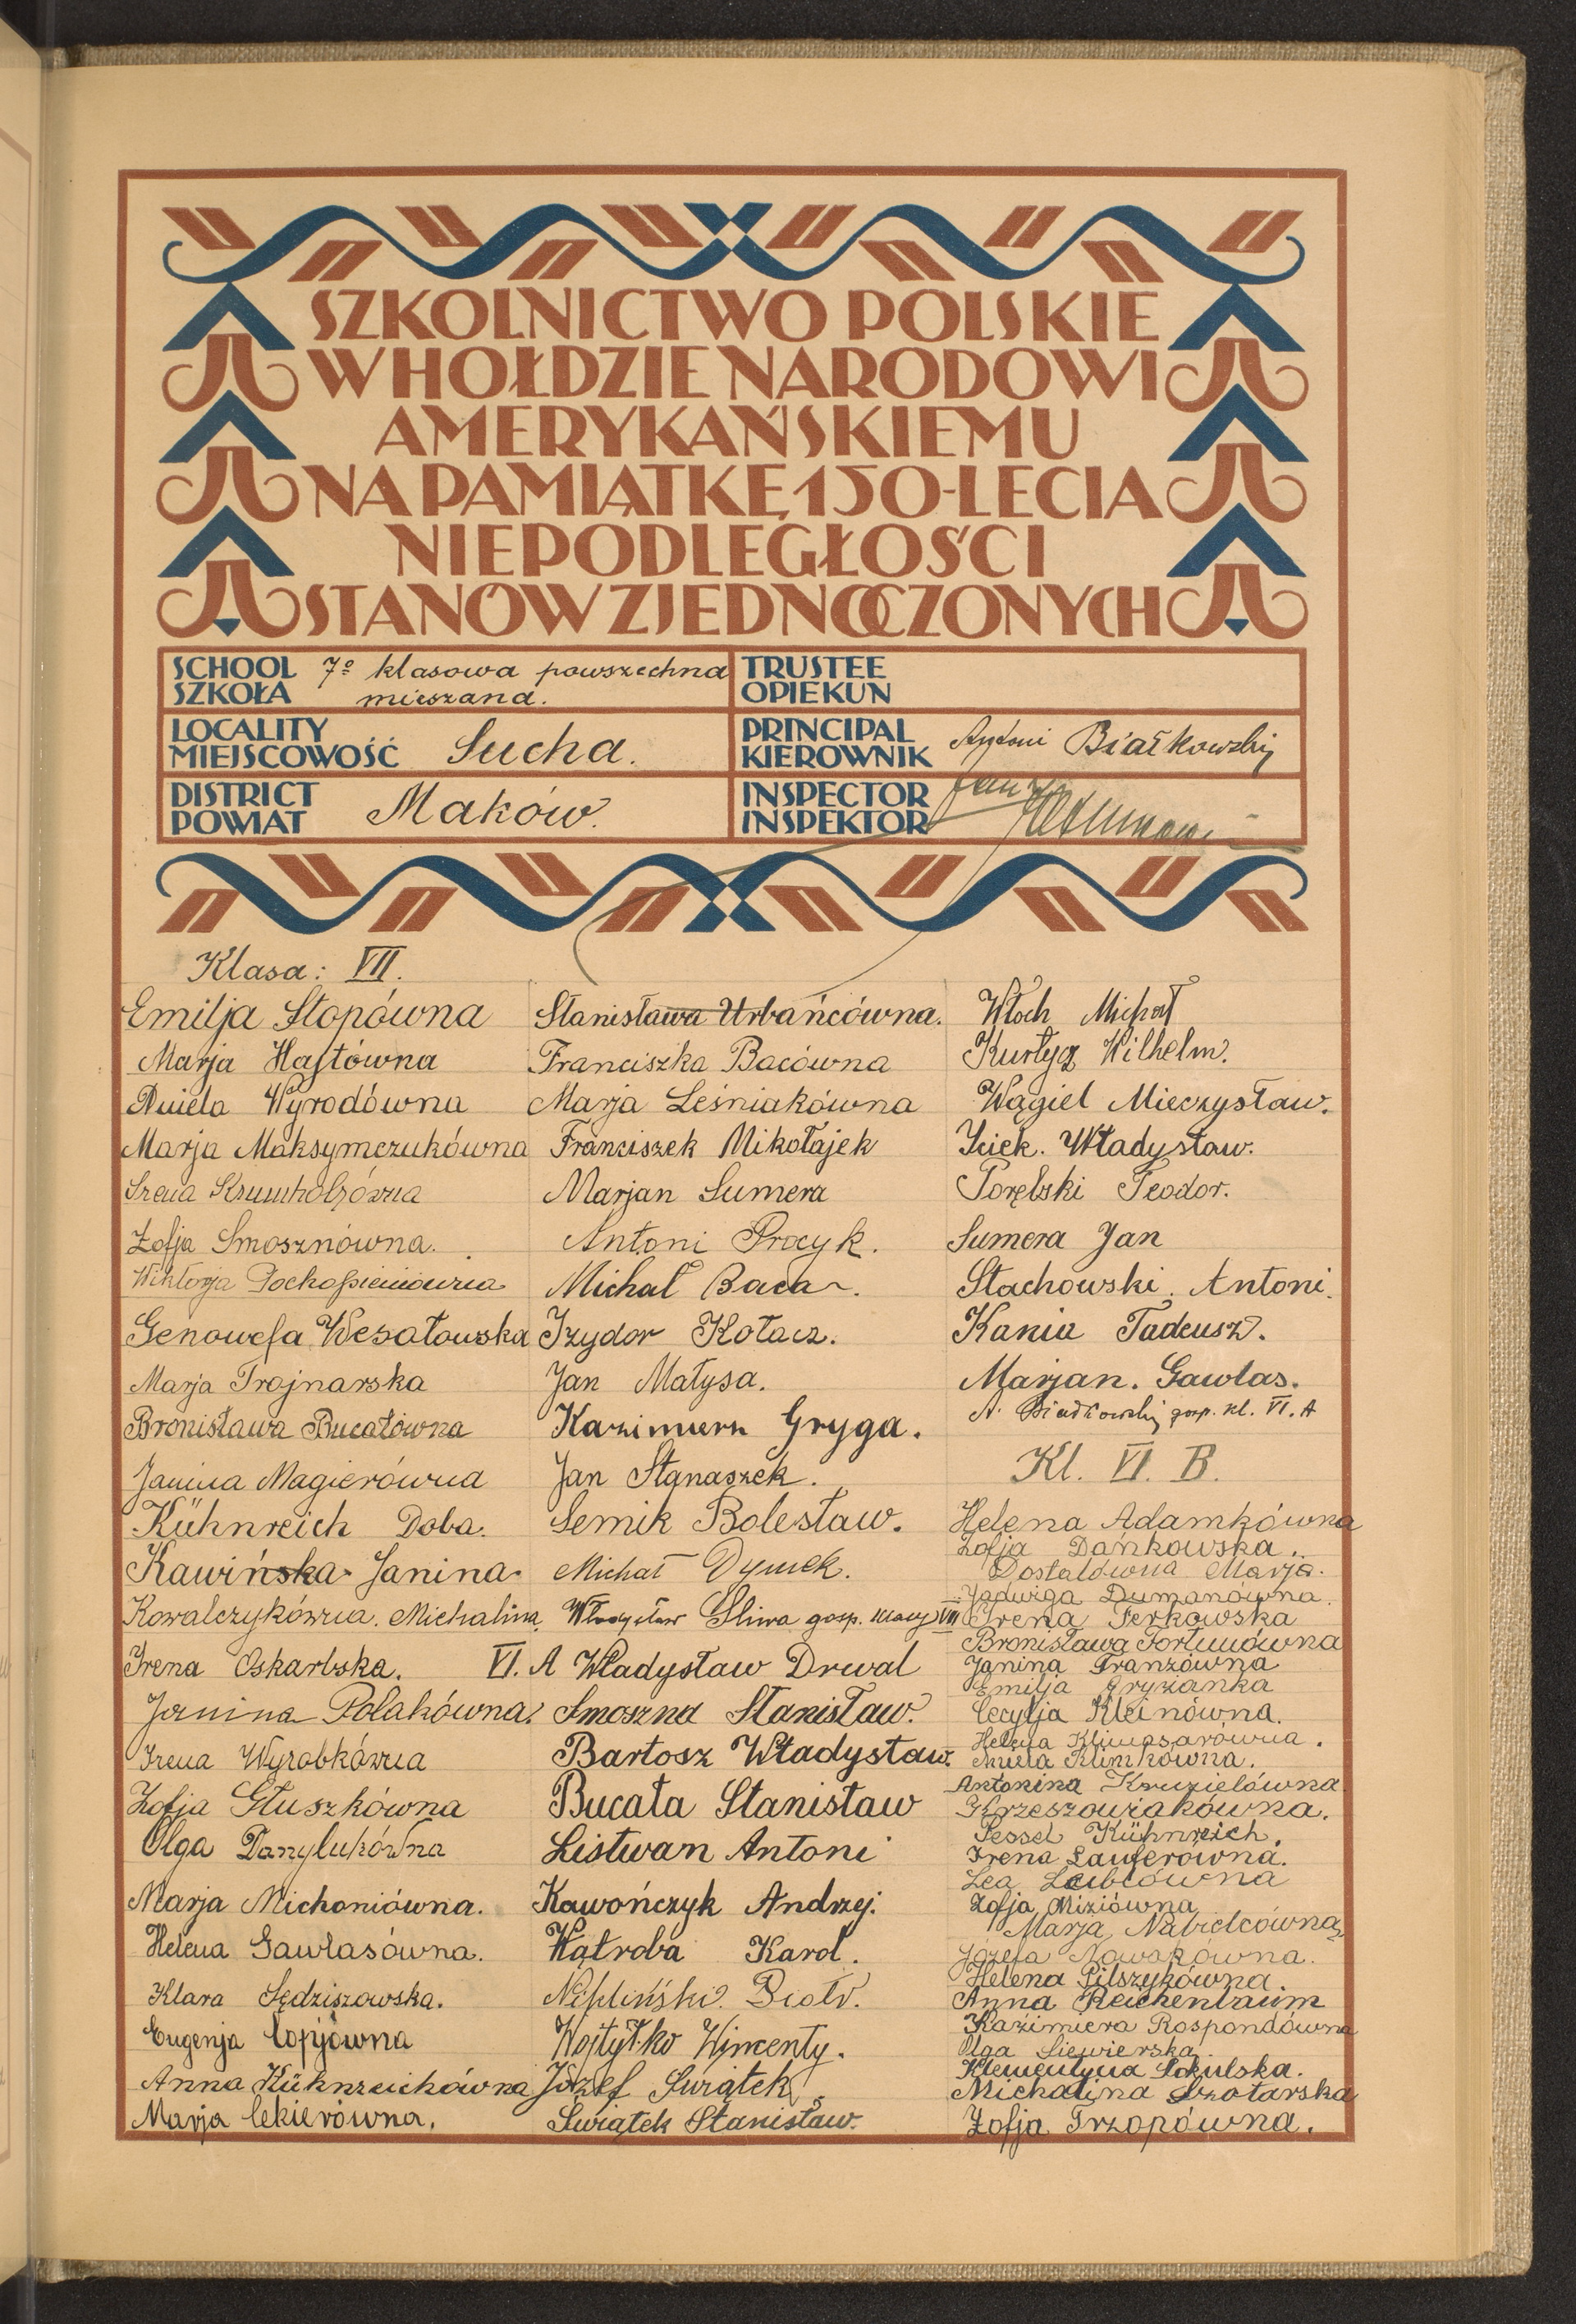 SZKOLNICTWO POLSKIE
W HOŁDZIE NARODOWI
AMERYKAŃSKIEMU
NA PAMIĄTKĘ 150-LECIA
NIEPODLEGŁOŚCI
STANÓW ZJEDNOCZONYCH
SCHOOL
SZKOŁA
7º klasowa powszechna
mieszana.
TRUSTEE
OPIEKUN
LOCALITY
MIEJSCOWOŚĆ
Sucha.
PRINCIPAL
KIEROWNIK
Antoni Białkowski
DISTRICT
POWIAT
Maków.
INSPECTOR
INSPEKTOR
Klasa: VII.
Emilja Stopówna
Marja Hajtówna
Aniela Wyrodówna
Marja Maksymczukówna
Irena Krumholzówna
Zofja Smosznówna.
Wiktorja
Genowefa Wesołowska
Marja Trojnarska
Bronisława Bucałówna
Janina Magierówna
Kühnreich Doba.
Kawińska Janina.
Kowalczykówna. Michalina.
Irena Oskarbska.
Janina Polakówna.
Irena Wyrobkówna
Zofja Głuszkówna
Olga Danylukówna
Marja Michoniówna.
Helena Gawlasówna.
Klara Sędziszowska.
Eugenja Copjówna
Anna Kühnreichówna
Marja Cekierówna.
Stanisława Urbańcówna.
Franciszka Bacówna
Marja Leśniakówna
Franciszek Mikołajek
Marjan Sumera
Antoni Procyk.
Michał Baca.
Izydor Kołacz.
Jan Małysa.
Kazimierz Gryga.
Jan Stanaszek.
Semik Bolesław.
Michał Dymek.
Władysław Śliwa gosp. klasy VII
VI. A Władysław Drwal
Smoszna Stanisław.
Bartosz Władysław.
Bucała Stanisław
Listwan Antoni
Kawończyk Andrzej.
Wątroba Karol.
Piotr.
Wojtyłko Wincenty.
Józef Świątek
Świątek Stanisław.
Włoch Michał
Kurtyą Wilhelm.
Wągiel Mieczysław.
Iciek. Władysław.
Porębski Teodor.
Sumera Jan
Stachowski. Antoni.
Kania Tadeusz.
Marjan. Gawlas.
A. Białkowski gosp. kl. VI. A
Kl. VI. B.
Helena Adamkówna
Zofja Dańkowska.
Dostalówna Marja.
Jadwiga Dumanówna.
Irena Ferkowska
Bronisława Fortunówna
Janina Franzówna
Emilja Gryzianka
Cecylja Kleinówna.
Helena Klimasarówna.
Aniela Klimkówna.
Antonina Kruzielówna.
Krzeszowiakówna.
Pessel Kühnreich.
Irena Lauferówna.
Lea Leiblówna
Zofja Miziówna
Marja Nabielcówna
Józefa Nowakówna.
Helena Pilszykówna.
Anna Reichenbaum
Kazimiera Rospondówna
Olga Siewierska.
Klementyna Sokulska.
Michalina Szotarska
Zofja Trzopówna.